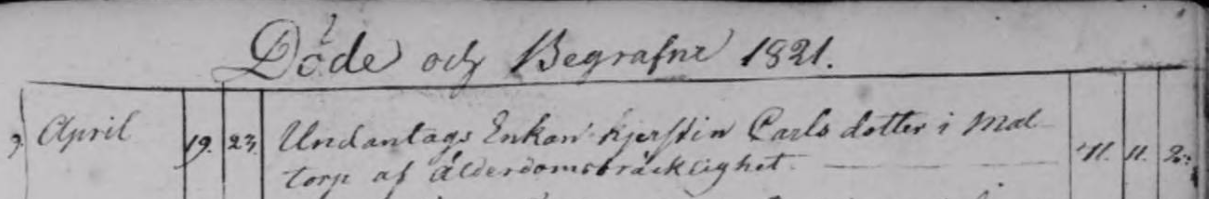 Döde och Begrafne 1821.
April 19. 23. Undantags Enkan Kjerstin Carls dotter i Mal-
torp af Ålderdomsbräcklighet. 11.